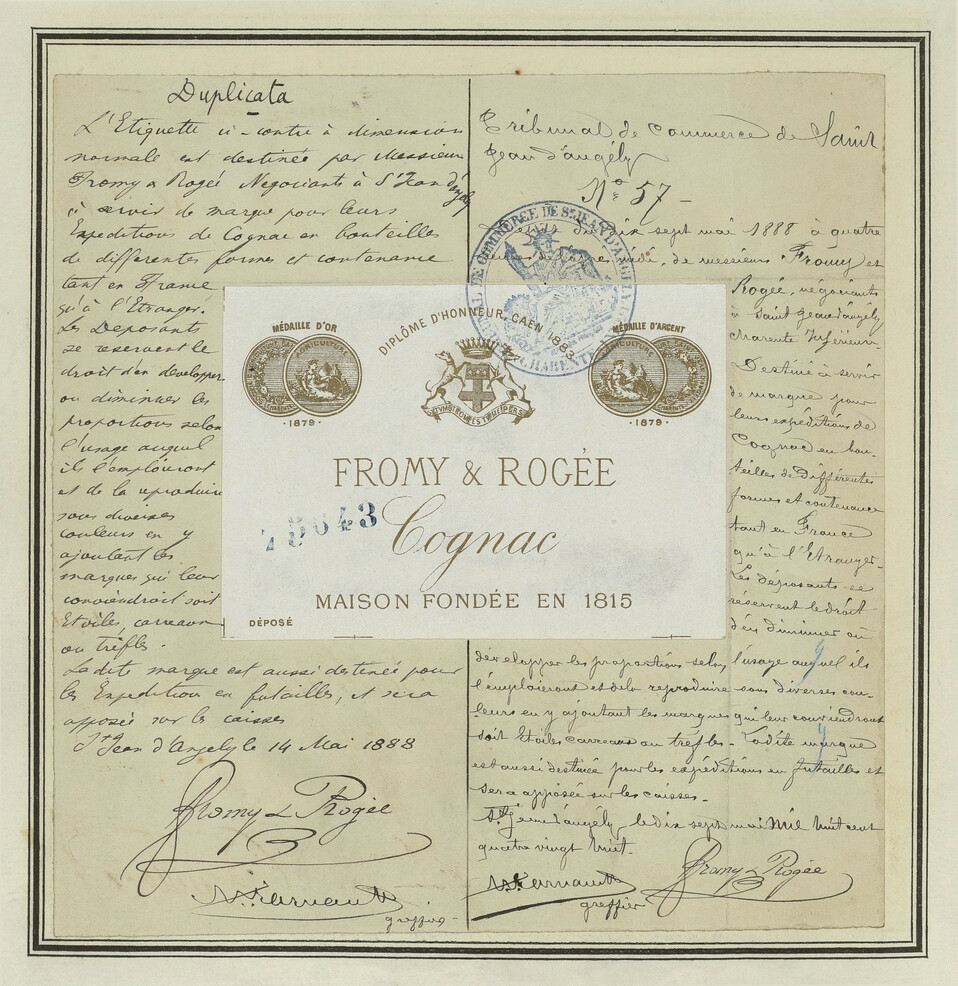 Duplicata
L'Etiquette ci-contre à dimension
normale est destinée par Messieurs
Fromy & Rogée Negociants à St Jean d'Angely
à servir de marque pour leurs
Expeditions de Cognac en bouteilles
de differentes formes et contenance
tant en France
qu'à l'Etranger.
Les Deposants
se reservent le
droit d'en developper
ou diminuer les
proportions selon
l'usage auquel
ils l'emploieront
et de la reproduire
sous diverses
couleurs en y
ajoutant les
marques qui leur
conviendront soit
Etoiles, carreaux
ou trèfles.
La dite marque est aussi destinée pour
les Expedition en futailles, et sera
apposée sur les caisses
St Jean d'Angely le 14 Mai 1888
Fromy & Rogée
greffier
Tribunal de Commerce de Saint
Jean d'angély
No 57
du dix sept mai 1888 à quatre
heures de l'après midi, de messieurs Fromy et
Rogée, négociants
à Saint Jean d'angély
charente Inférieure.
Destiné à servir
de marque pour
leurs expéditions de
Cognac en bou-
teilles de différentes
formes et contenance
tant en France
qu'à l'Etranger.
Les déposants se
réservent le droit
d'en diminuer ou
développer les proportions selon l'usage auquel ils
l'emploieront et de la reproduire sous diverses cou-
leurs en y ajoutant les marques qui leur conviendront
soit Etoiles carreaux ou trèfles - Ladite marque
est aussi destinée pour les expéditions en futailles et
sera apposée sur les caisses.
St Jean d'angély, le dix sept mai Mil huit cent
quatre vingt huit.
Fromy & Rogée
greffier
DE COMMERCE DE ST JEAN D'ANGELY
MÉDAILLE D'OR
DIPLÔME D'HONNEUR, CAEN 1883
MÉDAILLE D'ARGENT
AGRICULTURE
AGRICULTURE
·1879·
·1879·
FROMY & ROGÉE
Cognac
MAISON FONDÉE EN 1815
DÉPOSÉ